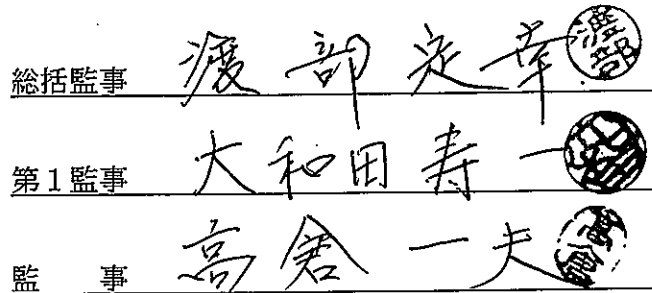 総括監事 渡部定幸 渡部
第1監事 大和田寿一
監事 高倉一夫 高倉